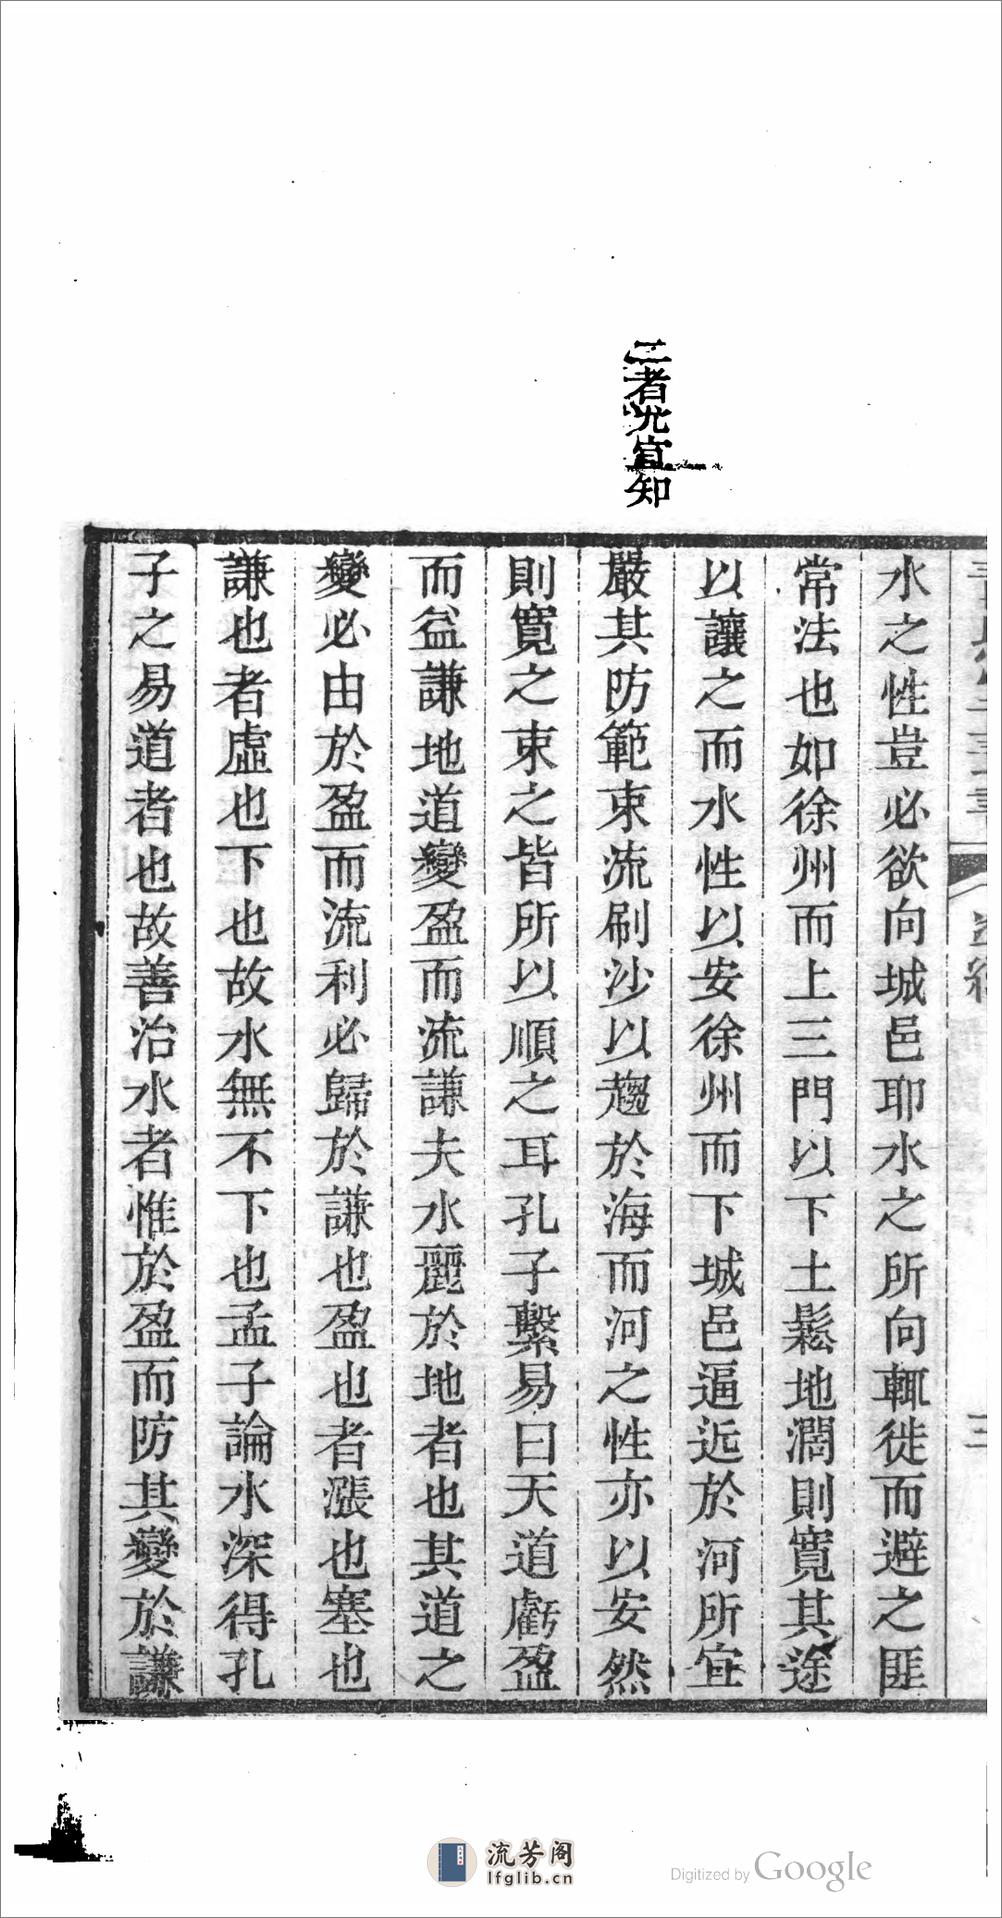 水之性豈必欲向城邑耶水之所向輒徙而避之匪
常法也如徐州而上三門以下土鬆地濶則寬其途
以讓之而水性以安徐州而下城邑逼近於河所宜
嚴其防範束流刷沙以趨於海而河之性亦以安然
則寬之束之皆所以順之耳孔子繫易曰天道虧盈
而益謙地道變盈而流謙夫水麗於地者也其道之
變必由於盈而流利必歸於謙也盈也者漲也塞也
謙也者虛也下也故水無不下也孟子論水深得孔
子之易道者也故善治水者惟於盈而防其變於謙
者尤宜知
三
流芳阁
lfglib.cn
Digitized by Google